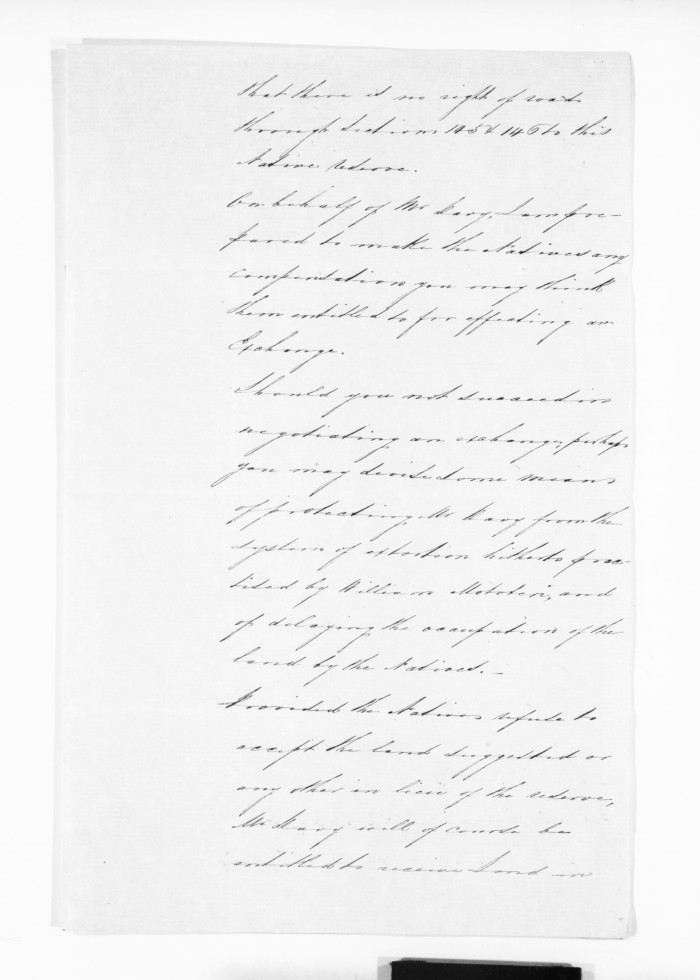 that there is no right of road
through Sections 145 & 146 to this
Native reserve.
On behalf of Mr I am pre-
pared to make the Natives any
compensation you may think
them entitled to for effecting an
Exchange.
Should you not succeed in
negotiating an exchange, perhaps
you may devise some means
of protecting Mr from the
system of extortion hitherto prac-
tised by William and
of delaying the occupation of the
land by the Natives.—
Provided the Natives refuse to
accept the land suggested or
any other in lieu of the reserve,
Mr will of course be
entitled to receive Land in